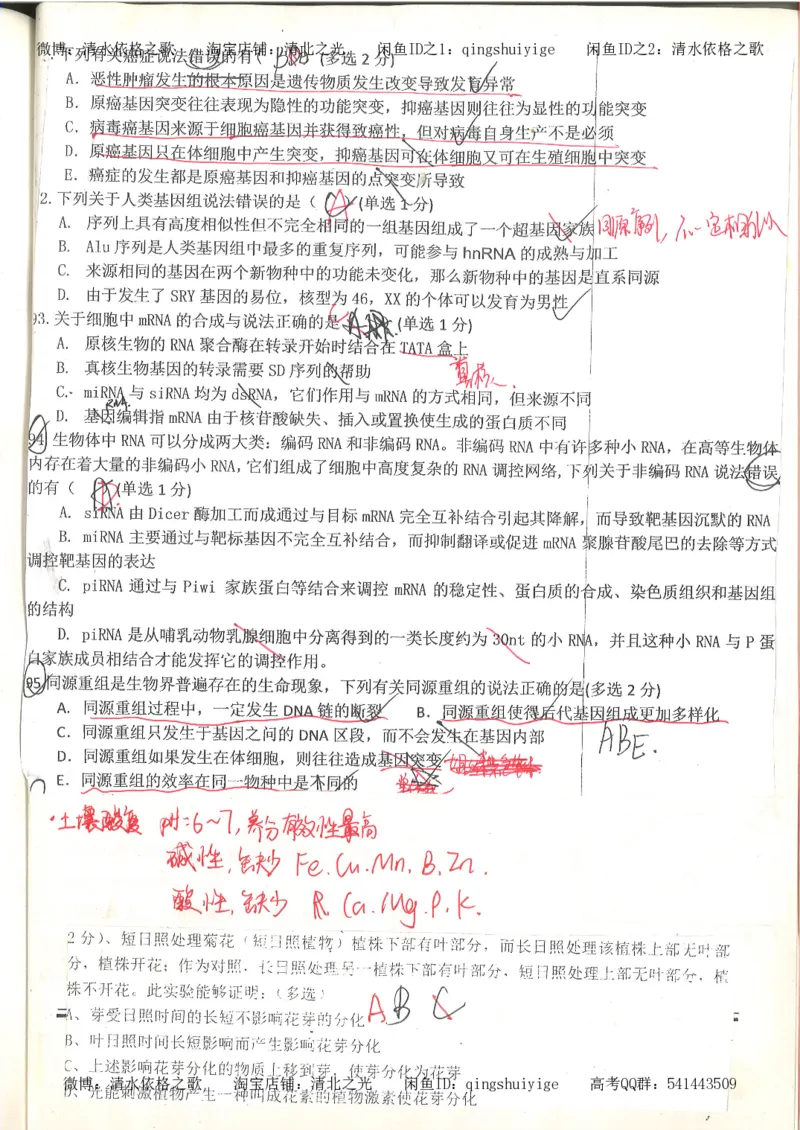 微博：清水依格之歌 淘宝店铺：清北之光 闲鱼ID之1：qingshuiyige 闲鱼ID之2：清水依格之歌
下列有关癌症说法错误的有（ (多选2分)
A. 恶性肿瘤发生的根本原因是遗传物质发生改变导致发育异常
B. 原癌基因突变往往表现为隐性的功能突变，抑癌基因则往往为显性的功能突变
C. 病毒癌基因来源于细胞癌基因并获得致癌性，但对病毒自身生产不是必须
D. 原癌基因只在体细胞中产生突变，抑癌基因可在体细胞又可在生殖细胞中突变
E. 癌症的发生都是原癌基因和抑癌基因的点突变所导致
2.下列关于人类基因组说法错误的是（ A (单选1分)
A. 序列上具有高度相似性但不完全相同的一组基因组成了一个超基因家族 同源序列，不一定相似
B. Alu序列是人类基因组中最多的重复序列，可能参与hnRNA的成熟与加工
C. 来源相同的基因在两个新物种中的功能未变化，那么新物种中的基因是直系同源
D. 由于发生了SRY基因的易位，核型为46，XX的个体可以发育为男性
93.关于细胞中mRNA的合成与说法正确的是 (单选1分)
A. 原核生物的RNA聚合酶在转录开始时结合在TATA盒上
B. 真核生物基因的转录需要SD序列的帮助 真核
C. miRNA与siRNA均为dsRNA，它们作用与mRNA的方式相同，但来源不同
RNA
D. 基因编辑指mRNA由于核苷酸缺失、插入或置换使生成的蛋白质不同
94.生物体中RNA可以分成两大类：编码RNA和非编码RNA。非编码RNA中有许多种小RNA，在高等生物体
内存在着大量的非编码小RNA,它们组成了细胞中高度复杂的RNA调控网络,下列关于非编码RNA说法错误
的有（ D (单选1分)
A. siRNA由Dicer酶加工而成通过与目标mRNA完全互补结合引起其降解，而导致靶基因沉默的RNA
B. miRNA主要通过与靶标基因不完全互补结合，而抑制翻译或促进mRNA聚腺苷酸尾巴的去除等方式
调控靶基因的表达
C. piRNA通过与Piwi 家族蛋白等结合来调控 mRNA 的稳定性、蛋白质的合成、染色质组织和基因组
的结构
D. piRNA是从哺乳动物乳腺细胞中分离得到的一类长度约为30nt的小RNA，并且这种小RNA与P蛋
白家族成员相结合才能发挥它的调控作用。
95.同源重组是生物界普遍存在的生命现象，下列有关同源重组的说法正确的是(多选2分)
A. 同源重组过程中，一定发生DNA链的断裂 B. 同源重组使得后代基因组成更加多样化
C. 同源重组只发生于基因之间的DNA区段，而不会发生在基因内部 ABE.
D. 同源重组如果发生在体细胞，则往往造成基因突变
E. 同源重组的效率在同一物种中是不同的
·土壤酸度 pH=6~7,养分有效性最高
碱性,缺少 Fe.Cu.Mn.B.Zn.
酸性,缺少 Ca.Mg.P.K.
2分）、短日照处理菊花（短日照植物）植株下部有叶部分，而长日照处理该植株上部无叶部
分，植株开花；作为对照，长日照处理另一植株下部有叶部分，短日照处理上部无叶部分，植
株不开花。此实验能够证明：(多选) ABC
A、芽受日照时间的长短不影响花芽的分化
B、叶日照时间长短影响而产生影响花芽分化
C、上述影响花芽分化的物质上移到芽，使芽分化为花芽
微博：清水依格之歌 淘宝店铺：清北之光 闲鱼ID：qingshuiyige 高考QQ群：541443509
D、光能刺激植物产生一种叫成花素的植物激素使花芽分化